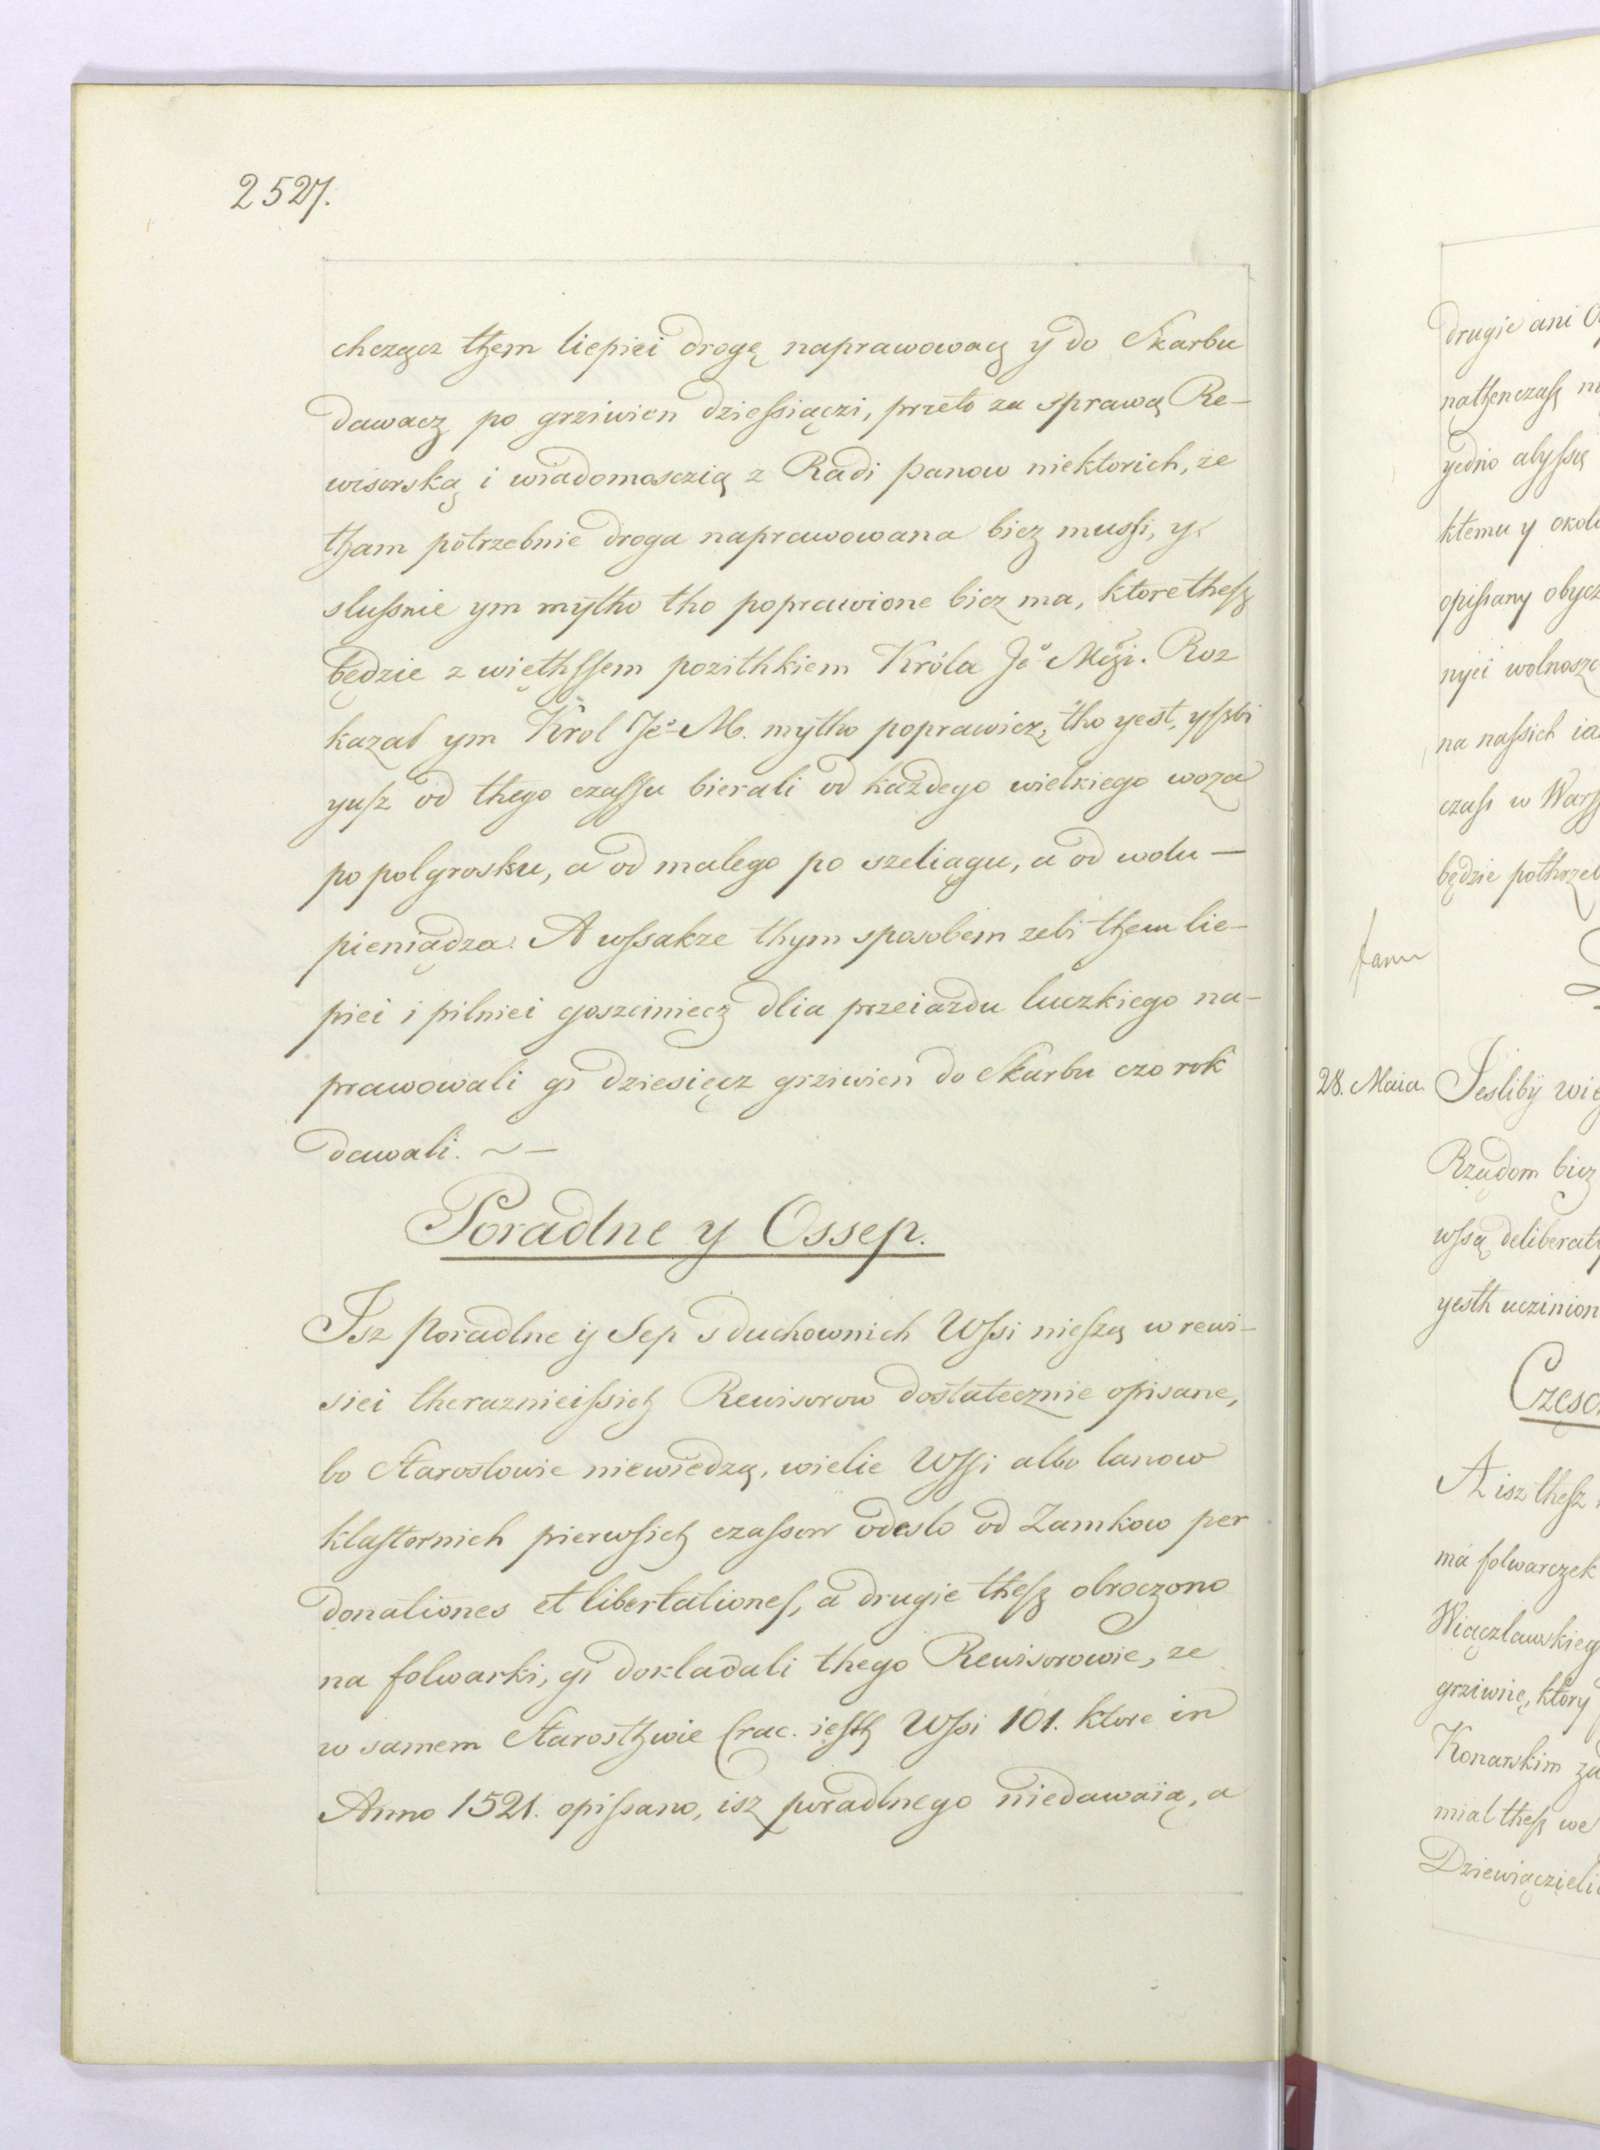 2527.
chczącz them liepiei drogę naprawowacz y do Skarbu
dawacz po grziwien dziessiączi, przeto za sprawą Re-
wisorską i wiadomosczią z Radi panow niektorich, że
tham potrzebnie droga naprawowana bicz mussi, y
slusznie ym mytho tho poprawione bicz ma, ktore thesz
będzie z więthssem pozithkiem Króla Je° Mczi. Roz
kazał ym Krol Je° M. mytho poprawicz, tho yest, yszbi
yusz od thego czassu bierali od każdego wielkiego woza
po polgrosku, a od malego po szeliągu, a od wolu —
pieniądza. A wssakze thym sposobem zebi them lie-
piei i pilniei goscziniecz dlia przeiazdu luczkiego na-
prawowali gi dziesięcz grziwien do Skarbu czo rok
dawali. ~ —
Poradlne y Ossep.
Isz Poradlne y Sep s duchownich Wssi nieszą w rewi-
siei theraznieissich Rewisorow dostatecznie opisane,
bo Starostowie niewiedzą, wielie Wssi albo lanow
klastornich pierwsich czassow odeslo od Zamkow per
donationes et libertationes, a drugie thesz obroczono
na folwarki, gi dokladali thego Rewisorowie, ze
w samem Starosthwie Crac. iesth Wssi 101. ktore in
Anno 1521. opissano, isz poradlnego niedawaią, a
drugie ani
nathenczasz
yedno abyssię
ktemu y
opissany
nyei
na nassich
czasz w
będzie
28. Maia. Jesliby
Rządom bicz
wssą
yesth
A isz thesz
ma folwarczek
grziwnię, ktory
Konarskim
mial thesz we